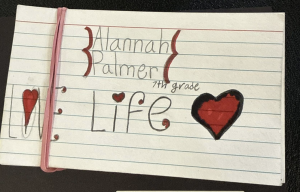 Alannah
Palmer
7th grade
Life